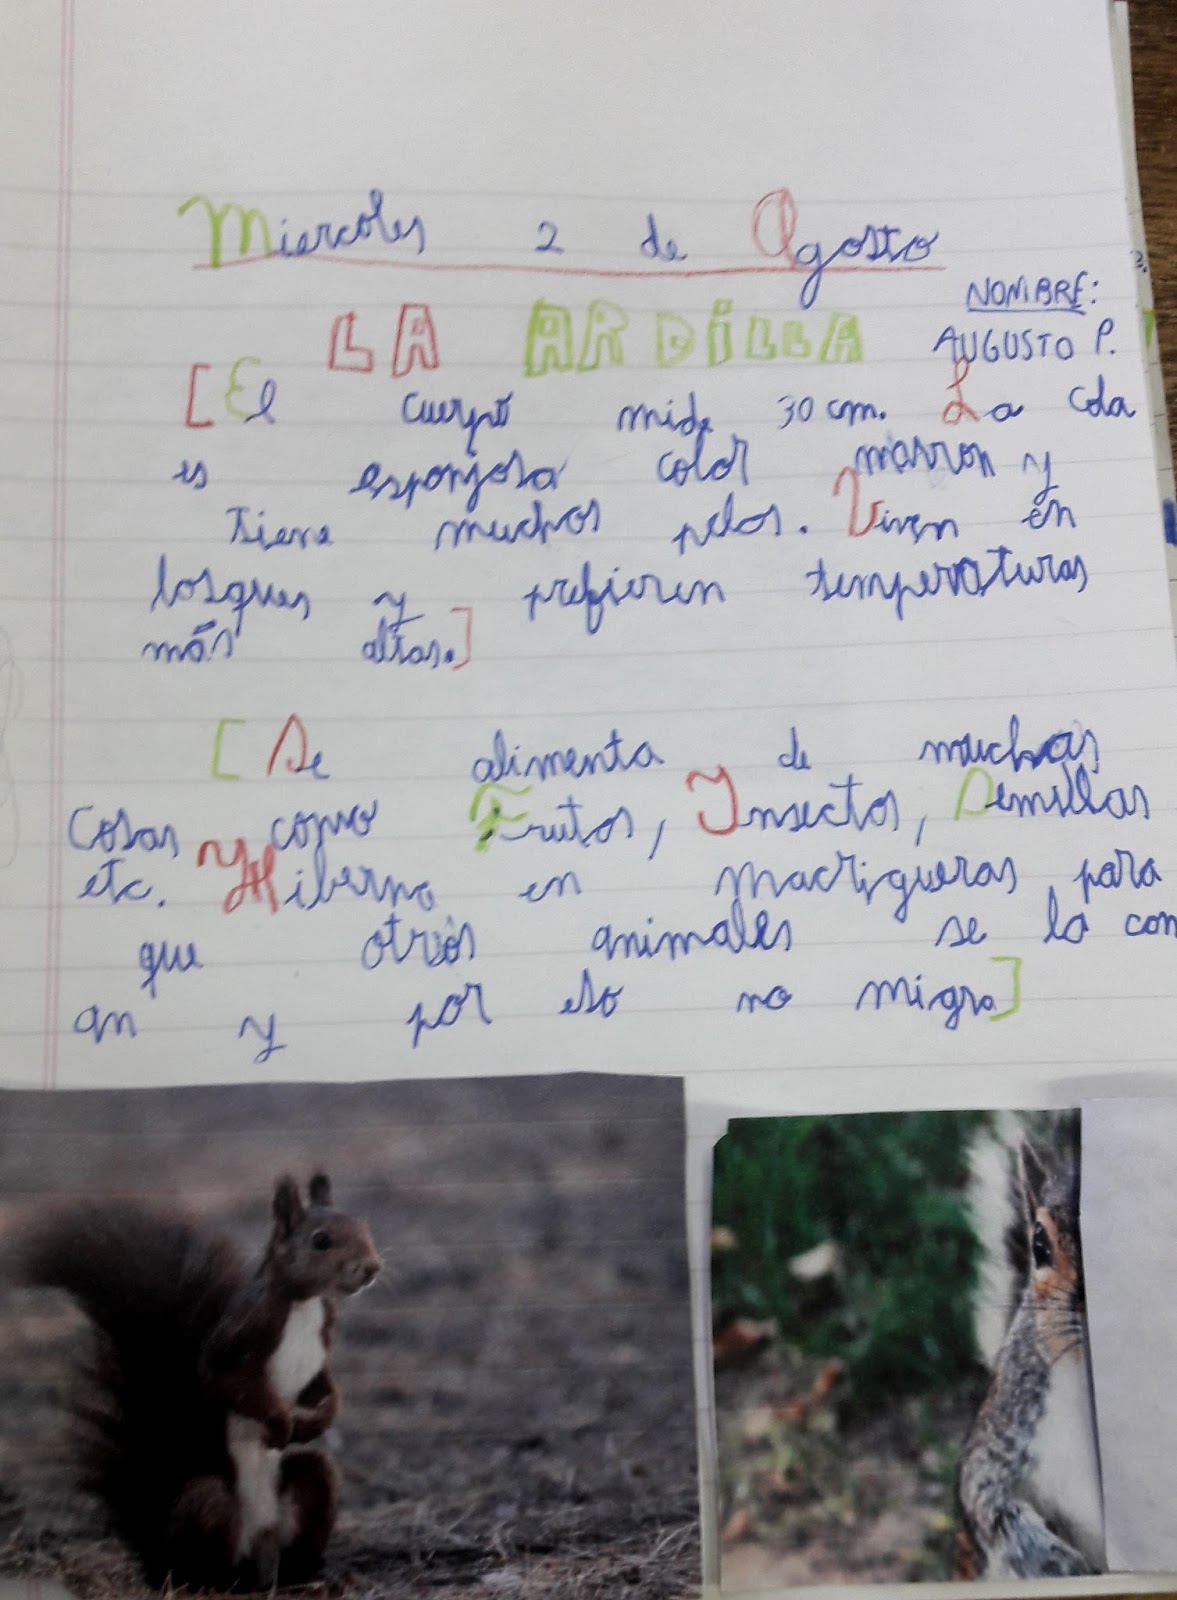 Miercoles 2 de Agosto
NOMBRE:
AUGUSTO P.
LA ARDILLA
[El cuerpo mide 30 cm. La cola
es esponjosa color marron y
tiene muchos pelos. Viven en
bosques y prefieren temperaturas
más altas.]
[Se alimenta de muchas
cosas como Frutos, Insectos, Semillas
etc. Y Hiberna en madrigueras para
que otros animales se la com
an y por eso no migra]